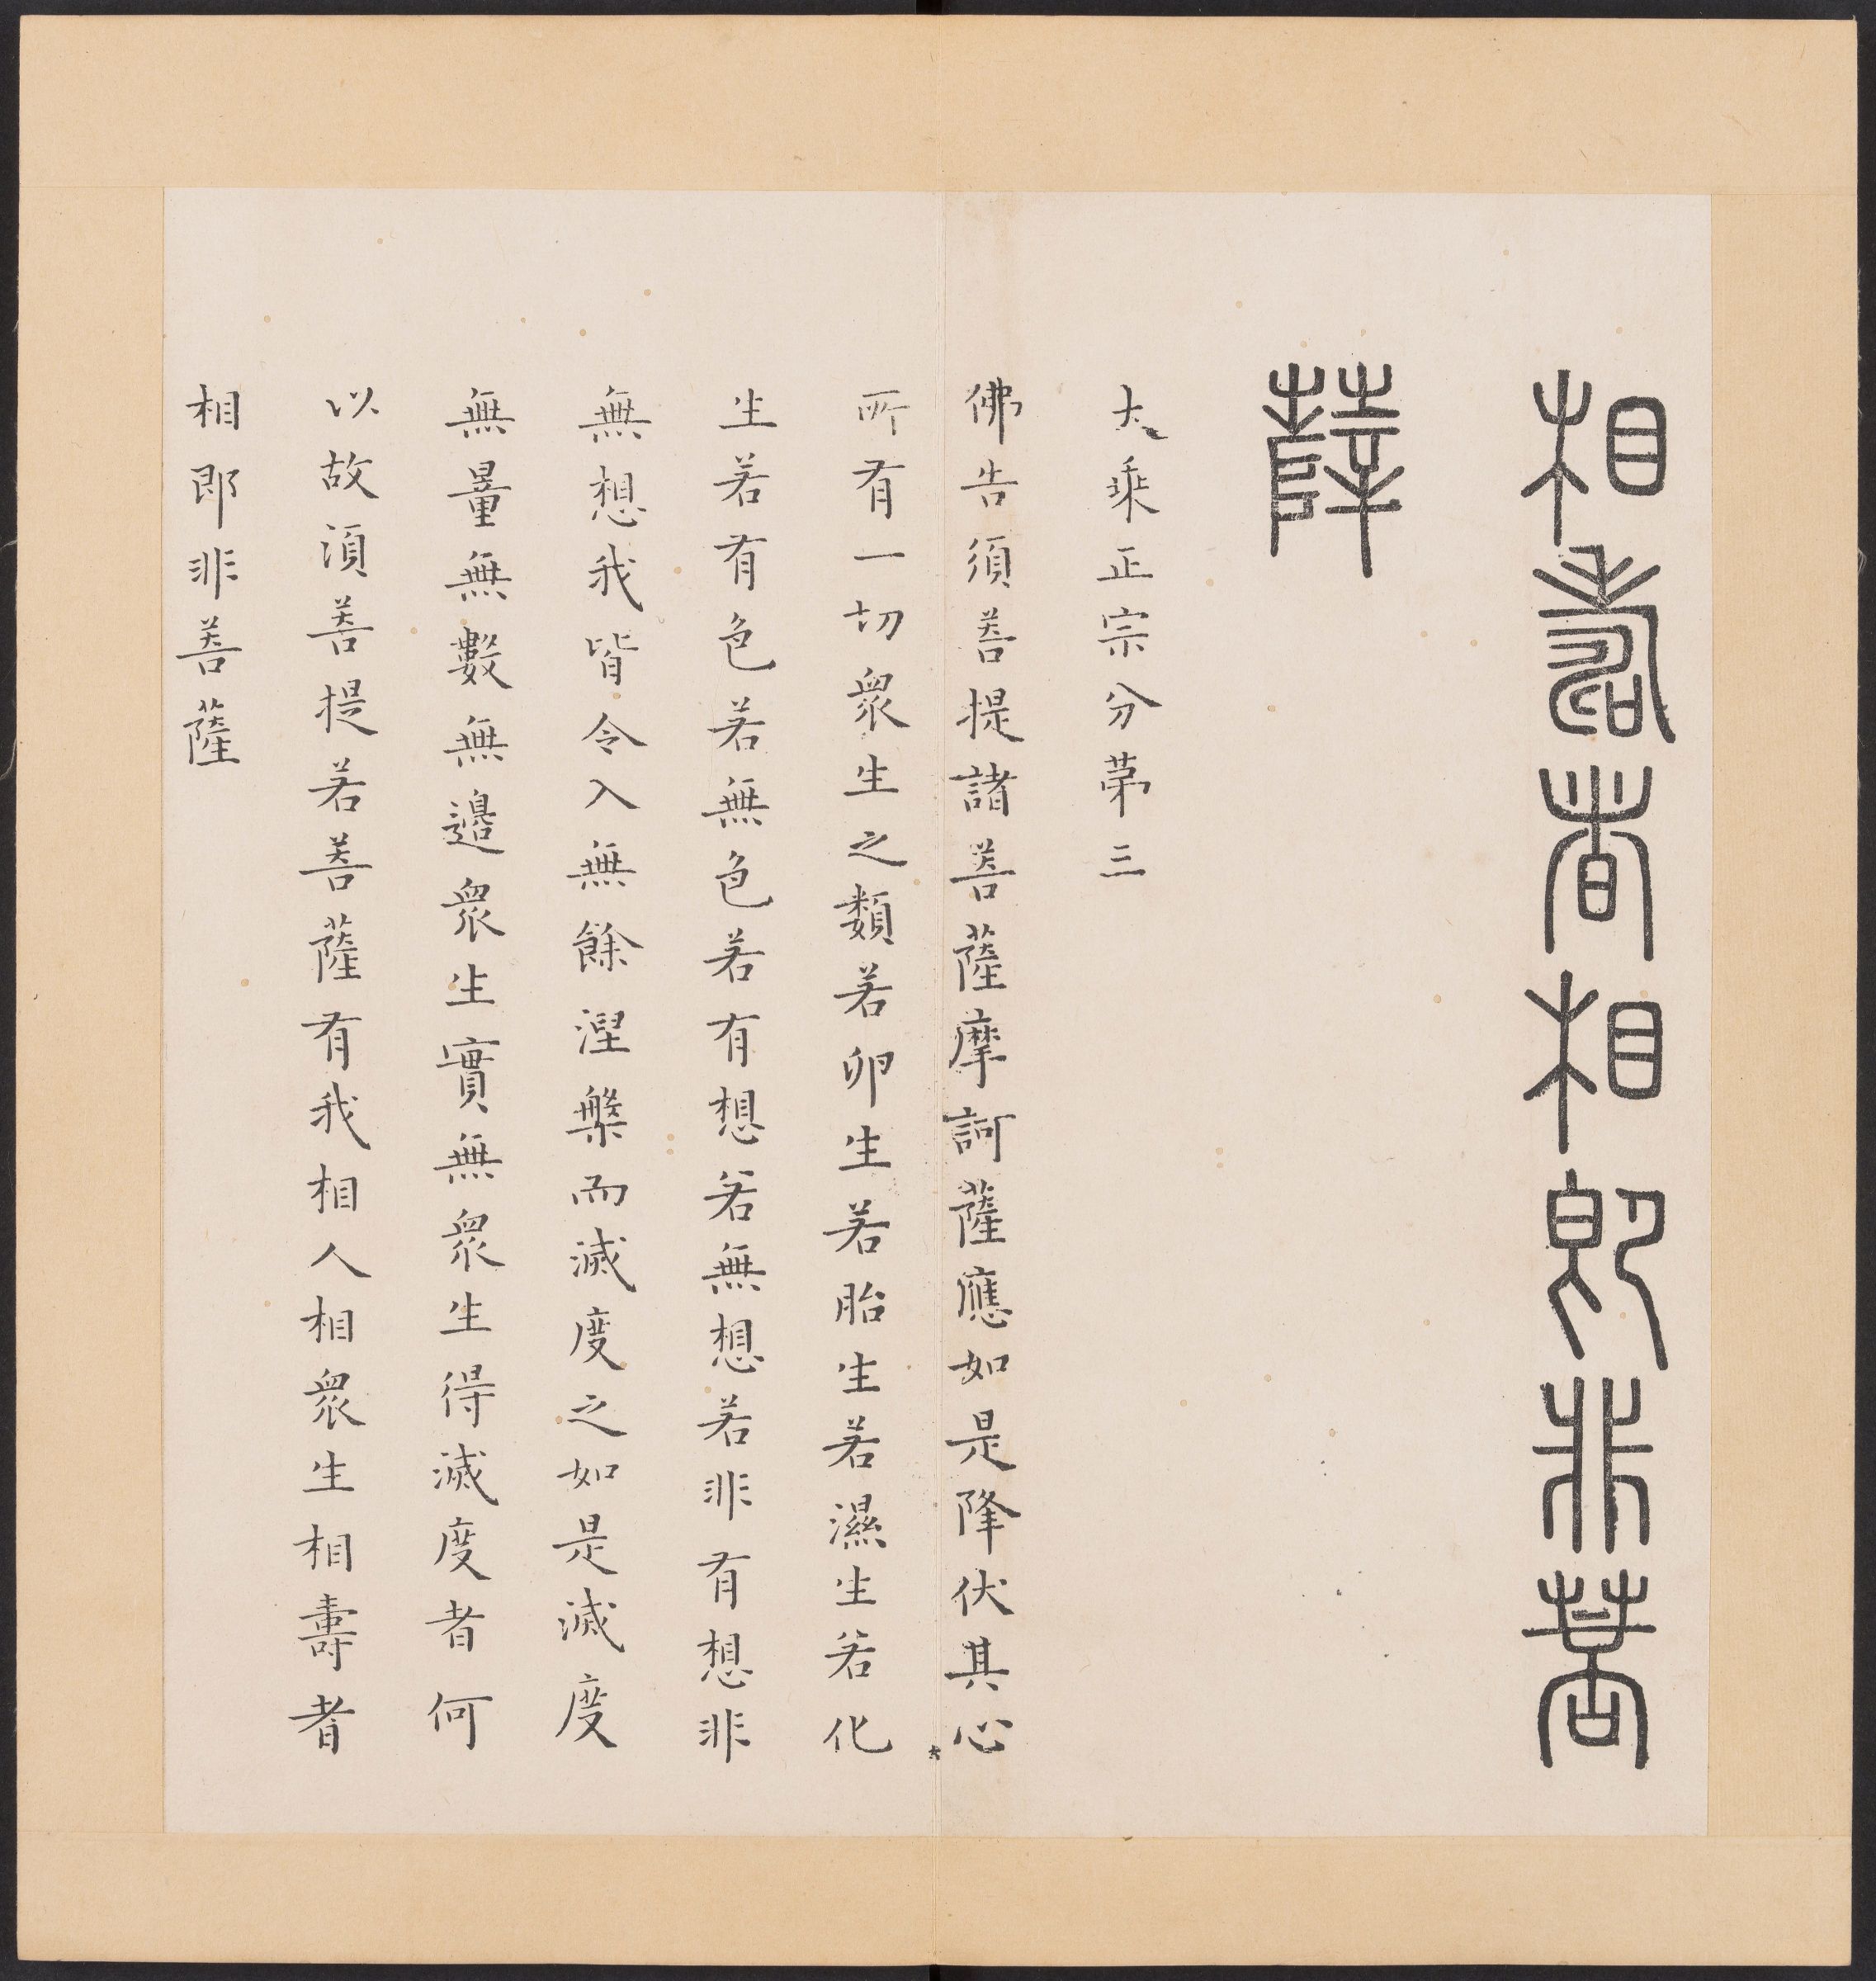 相壽者相即非菩
薩
大乘正宗分第三
佛告須菩提諸菩薩摩訶薩應如是降伏其心
所有一切衆生之類若卵生若胎生若濕生若化
生若有色若無色若有想若無想若非有想非
無想我皆令入無餘涅槃而滅度之如是滅度
無量無數無邊衆生實無衆生得滅度者何
以故須菩提若菩薩有我相人相衆生相壽者
相即非菩薩
六